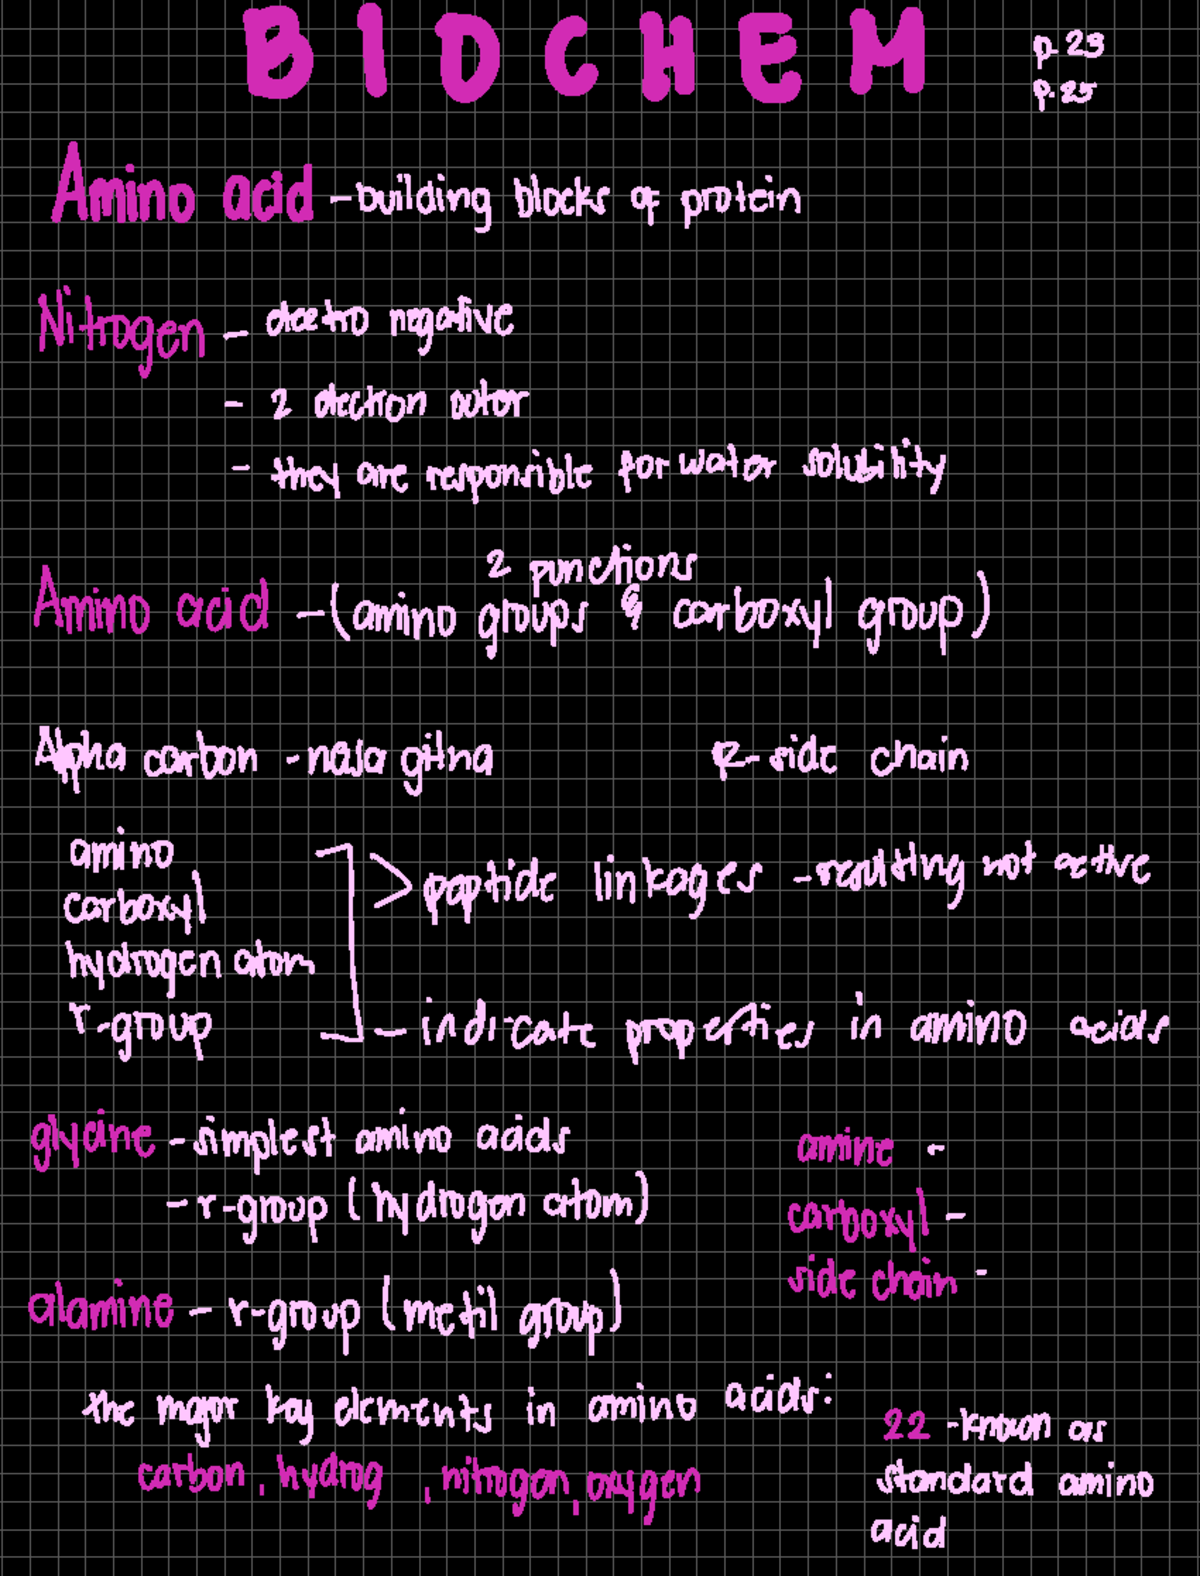 BIOCHEM
p. 23
p. 25
Amino acid - building blocks of protein
Nitrogen - electro negative
- 2 electron outer
- they are responsible for water solubility
2 punctions
Amino acid - (amino groups & carboxyl group)
Alpha carbon - nasa gitna
R- side chain
amino
carboxyl
> peptide linkages - resulting not active
hydrogen atom
r-group
- indicate properties in amino acids
glycine - simplest amino acids
- r-group (hydrogen atom)
amine -
carboxyl -
side chain -
alamine - r-group (metil group)
the major key elements in amino acids:
carbon, hydrog , nitrogen, oxygen
22 - known as
standard amino
acid